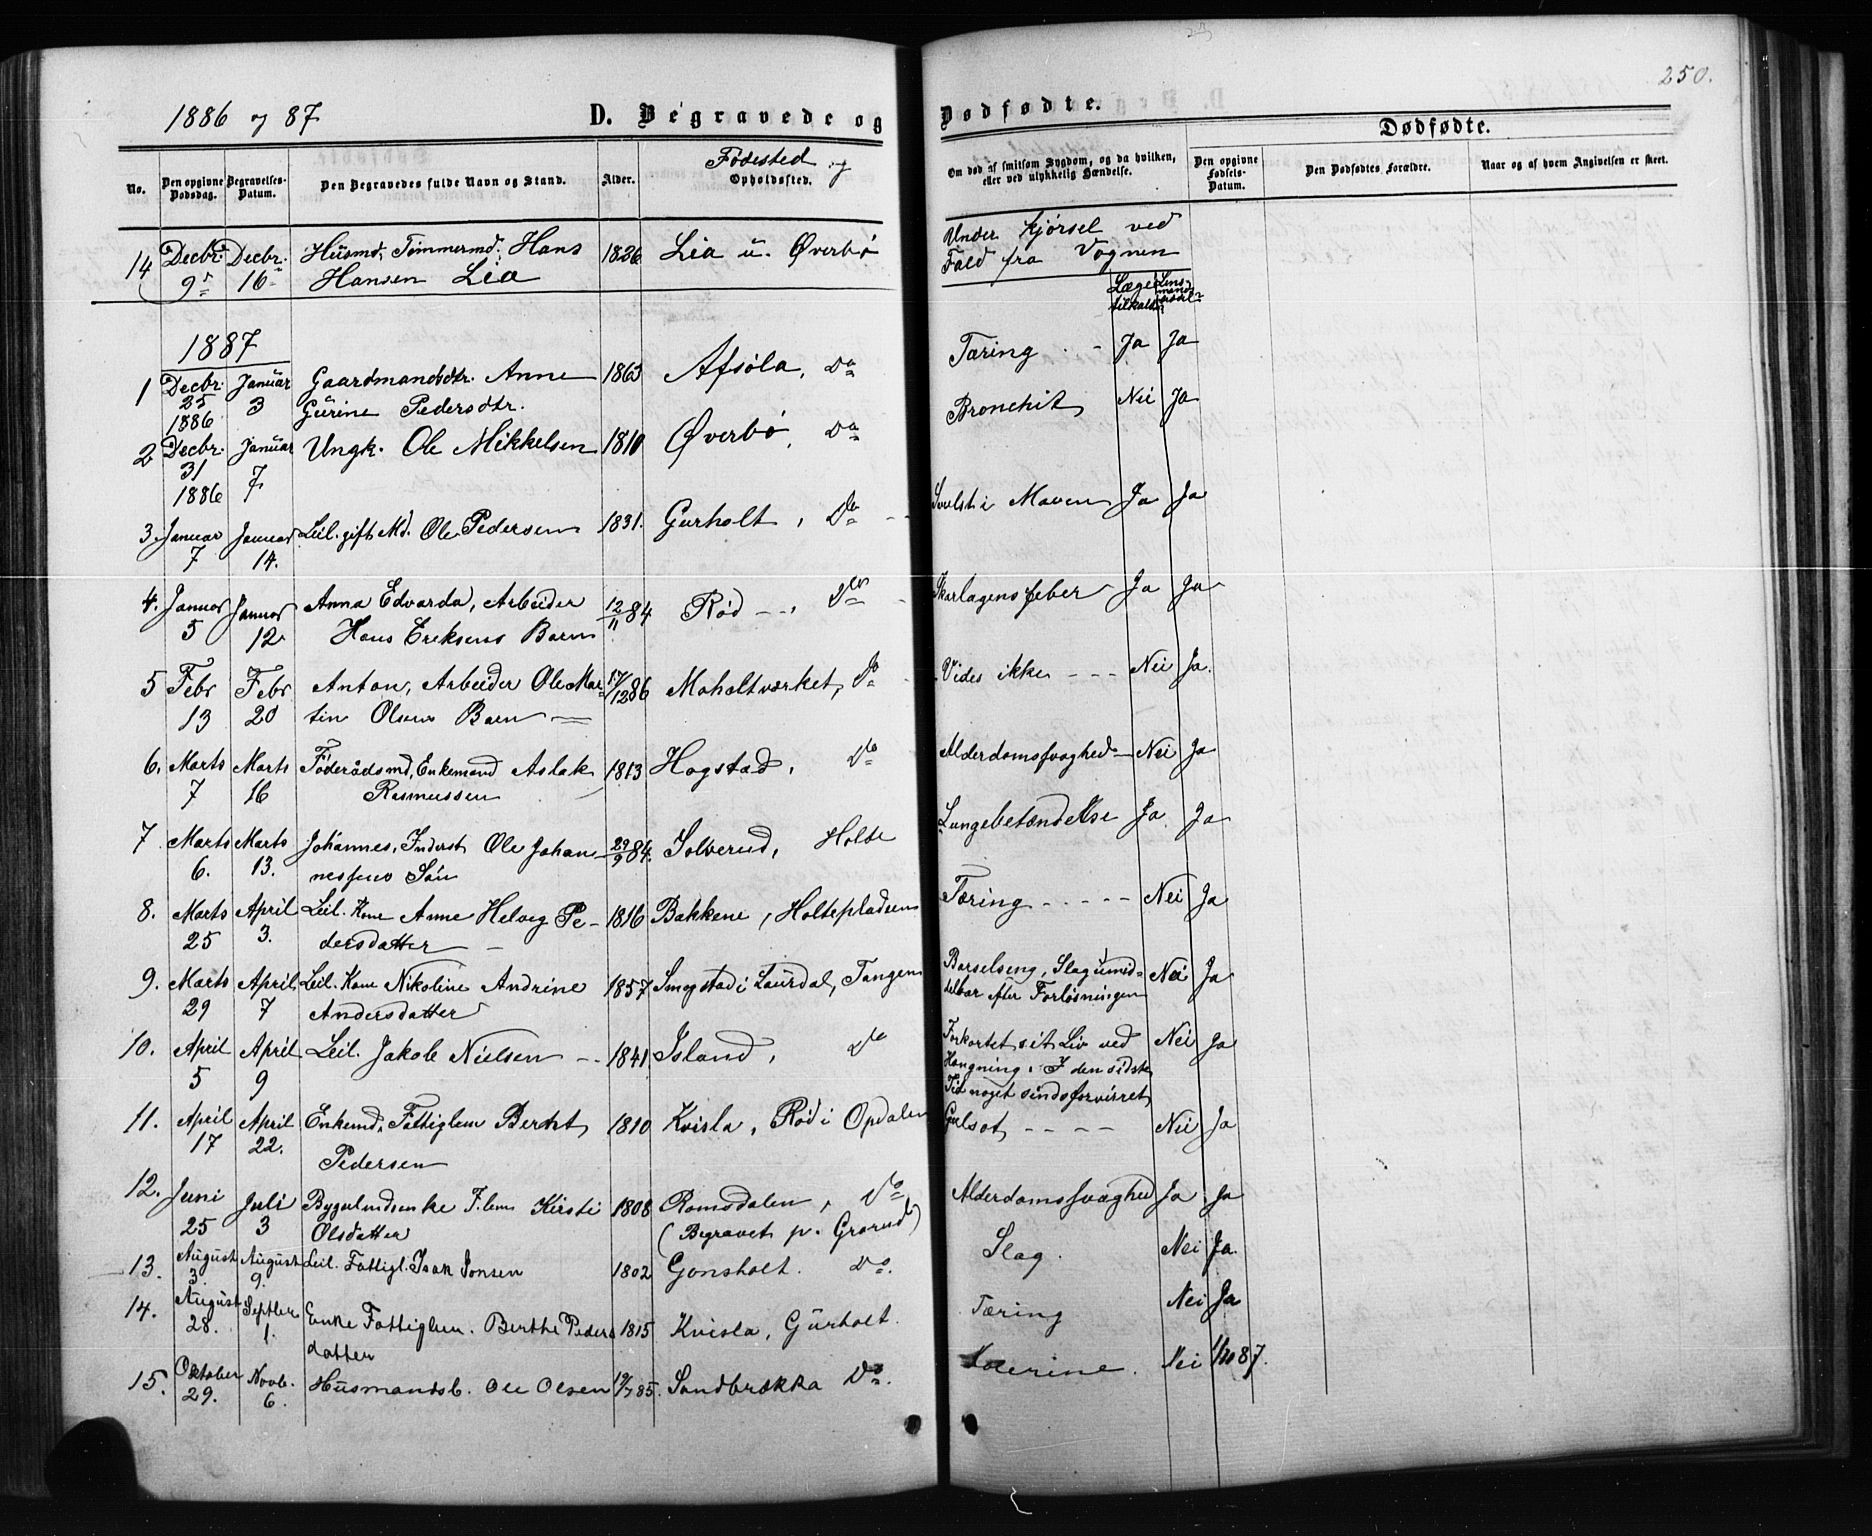 250.
1886 og 87 D. Begravede og Dødfødte.
Dødfødte.
No. Den opgivne Dødsdag. Begravelses-Datum. Den Begravedes fulde Navn og Stand. Alder. Fødested og Opholdssted. Om død af smitsom Sygdom, og da hvilken, eller ved ulykkelig Hændelse. Den opgivne Fødsels-Datum. Den Dødfødtes Forældre. Naar og af hvem Angivelsen er skeet.
14 Decbr. Decbr. Husmd. Tømmermd. Hans 1826 Lia u. Øverbø Under Kjørsel ved
9 16 Hansen Lia Fald fra Vognen
Læge tilkaldt Lens-mands
1887
1 Decbr. Januar Gaardmandsdtr. Anne 1863 Afsøla, Do Tæring - Ja Ja
25 3 Gurine Pedersdtr.
1886
2 Decbr. Januar Ungk. Ole Mikkelsen 1810 Øverbø, Do Bronchit Nei Ja
31 7
1886
3. Januar Januar Leil. gift Md. Ole Pedersen 1831. Gurholt, Do Svulst i Maven Ja Ja
7 14.
4. Januar Januar Anna Edvarda, Arbeider 12/11 84 Rød - , Do Skarlagensfeber Ja Ja
5 12 Hans Eriksens Barn
5 Febr Febr Anton, Arbeider Ole Mar- 17/12 86 Moholtværket, Do Vides ikke - - - Nei Ja.
13 20 tin Olsens Barn
6. Marts Marts Føderådsmd, Enkemand Aslak 1813 Hogstad, Do Alderdomssvaghed Nei Ja
7 16 Rasmussen
7 Marts Marts Johannes, Inderst Ole Johan- 29/9 84. Solverud, Holte Lungebetændelse Ja Ja
6. 13. nessens Søn
8. Marts April Leil. Kone Anne Helvig Pe- 1816 Bakkene, Holtepladsen Tæring - - - - - Nei Ja
25 3. dersdatter
9. Marts April Leil. Kone Nikoline Andrine 1857 Smestad i Laurdal, Tangen Barselseng, Slag umid- Nei Ja
29 7 Andersdatter delbar efter Forløsningen
10. April April Leil. Jakob Nielsen - - 1841. Island, Do Forkortet sit Liv ved Nei Ja
5 9 Hængning. I den sidste
Tid noget sindsforvirret
11. April April Enkemd, Fattiglem Berthet 1810 Kvisla, Rød i Opdalen Gulsot - - - - Nei Ja
17 22. Pedersen
12. Juni Juli Bygselmdsenke F.lem Kirsti 1808 Romsdalen, Do Alderdomssvaghed Ja Ja
25 3 Olsdatter (Begravet p. Grorud)
13. August August Leil. Fattigl. Isak Jonsen 1802 Gonsholt. Do. Slag. Nei Ja
3. 9.
14. August Septber Enke Fattiglem. Berthe Peders 1815 Kvisla, Gurholt. Tæring Nei Ja
28. 1. datter
15. Oktober Novb. Husmandsb. Ole Olsen 19/7 85. Sandbrækka Do. Nei
29. 6.